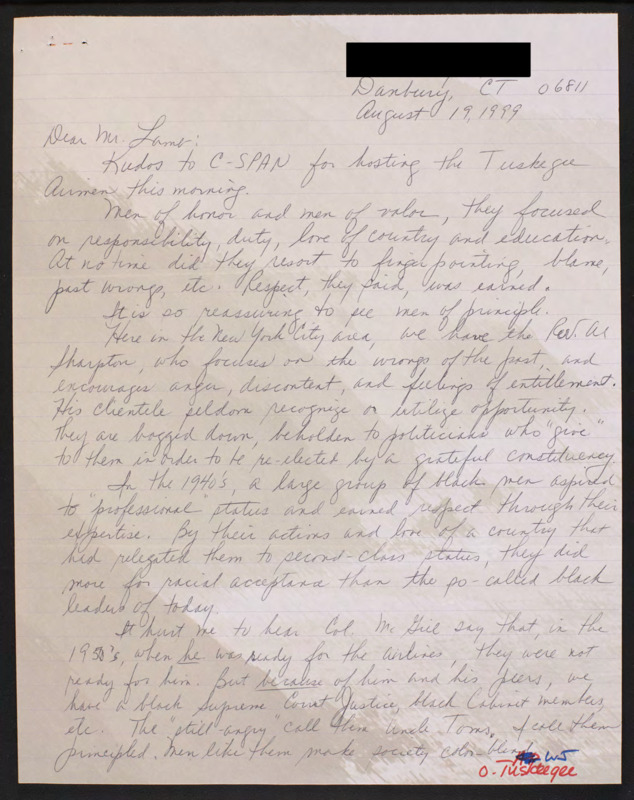 Danbury, CT 06811
August 19, 1999
Dear Mr. Lamb:
Kudos to C-SPAN for hosting the Tuskegee
Airmen this morning.
Men of honor and men of valor, they focused
on responsibility, duty, love of country and education.
At no time did they resort to finger pointing, blame,
past wrongs, etc. Respect, they said, was earned.
It is so reassuring to see men of principle.
Here in the New York City area, we have the Rev. Al
Sharpton, who focuses on the wrongs of the past, and
encourages anger, discontent, and feelings of entitlement.
His clientele seldom recognize or utilize opportunity.
They are bogged down, beholden to politicians who "give"
to them in order to be re-elected by a grateful constituency.
In the 1940's, a large group of black men aspired
to "professional" status and earned respect through their
expertise. By their actions and love of a country that
had relegated them to second-class status, they did
more for racial acceptance than the so-called black
leaders of today.
It hurt me to hear Col. Mc Gill say that, in the
1950's, when he was ready for the airlines, they were not
ready for him. But because of him and his peers, we
have a black Supreme Court Justice, black Cabinet members,
etc. The "still-angry" call them Uncle Toms. I call them
principled. Men like them make society color-blind.
O-Tuskeegee